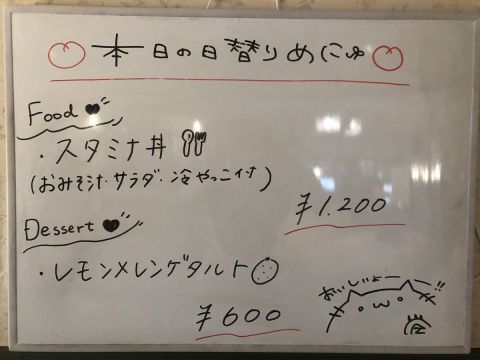 本日の日替りめにゅ
Food
・スタミナ丼
(おみそ汁・サラダ・冷やっこ付)
¥1.200
Dessert
・レモンメレンゲタルト
¥600
おいしいよーー!!